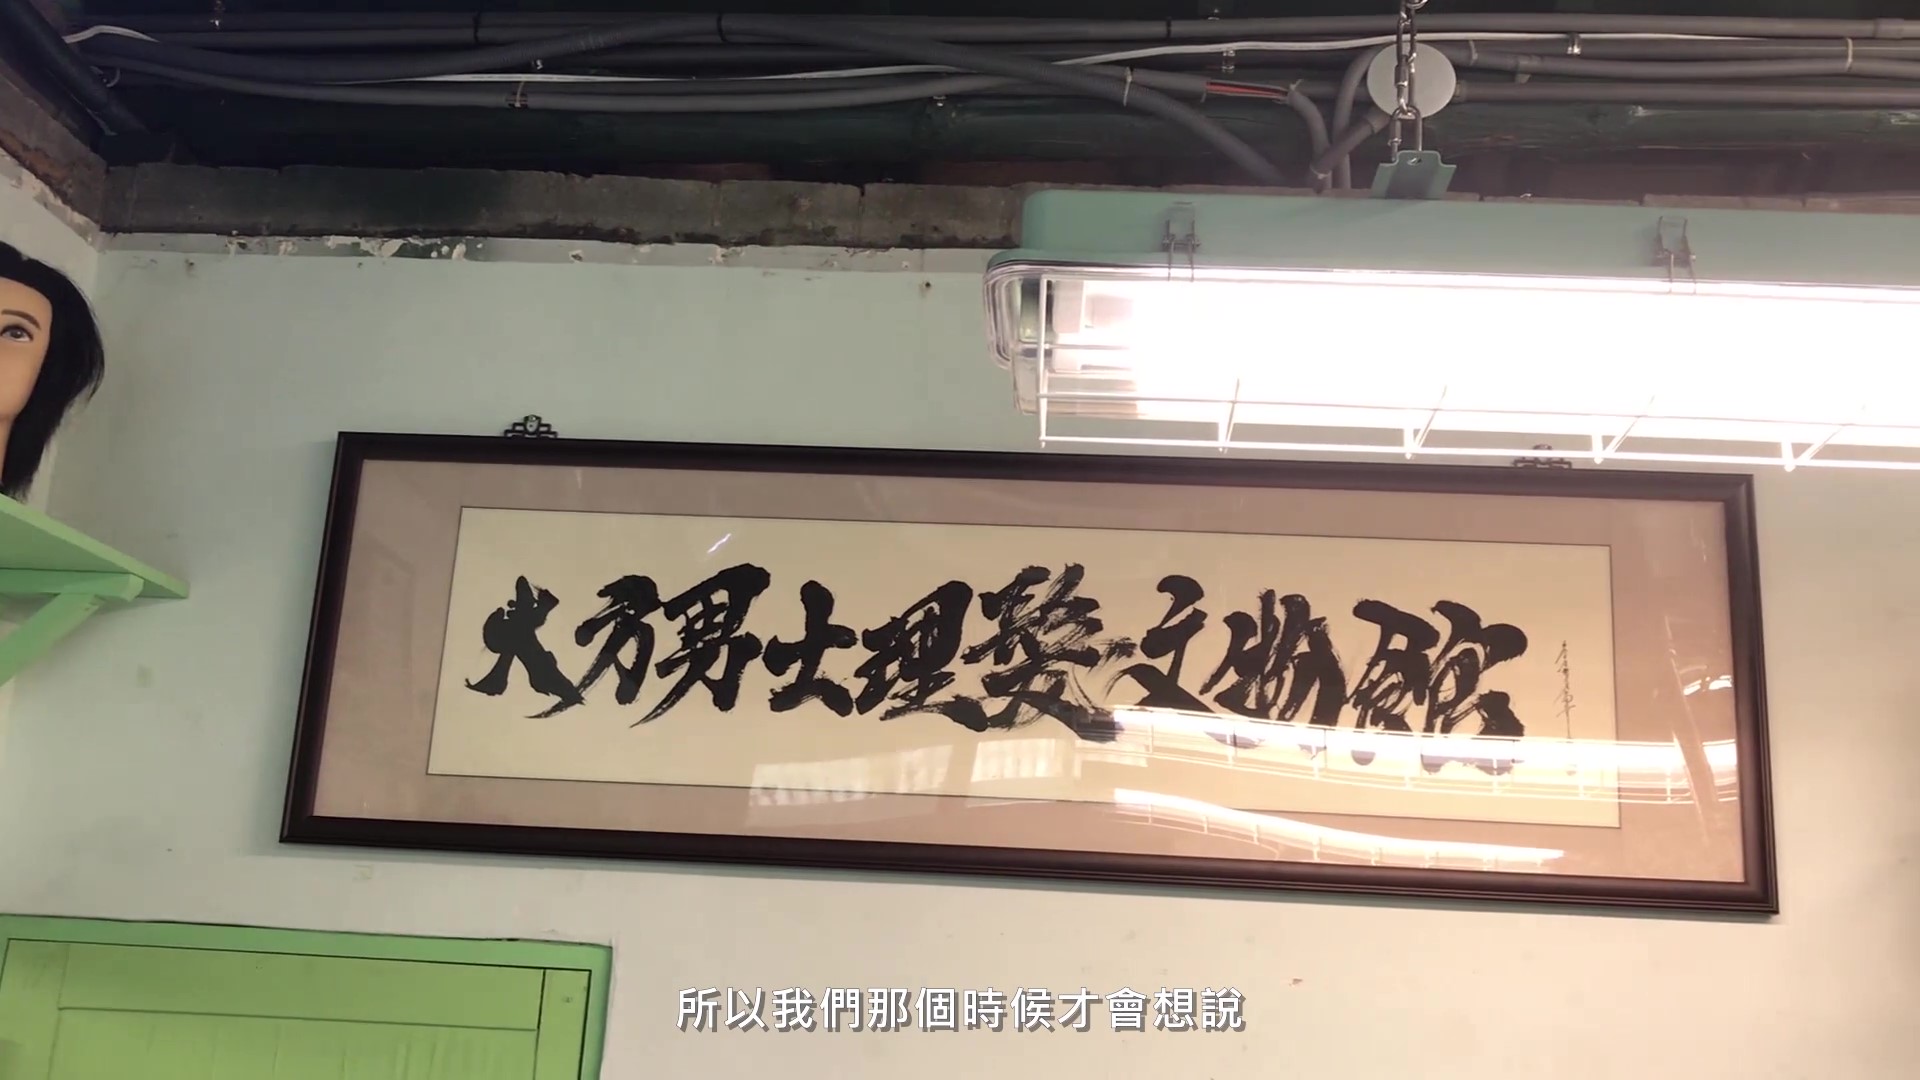 大方男士理髮文物館
所以我們那個時候才會想說